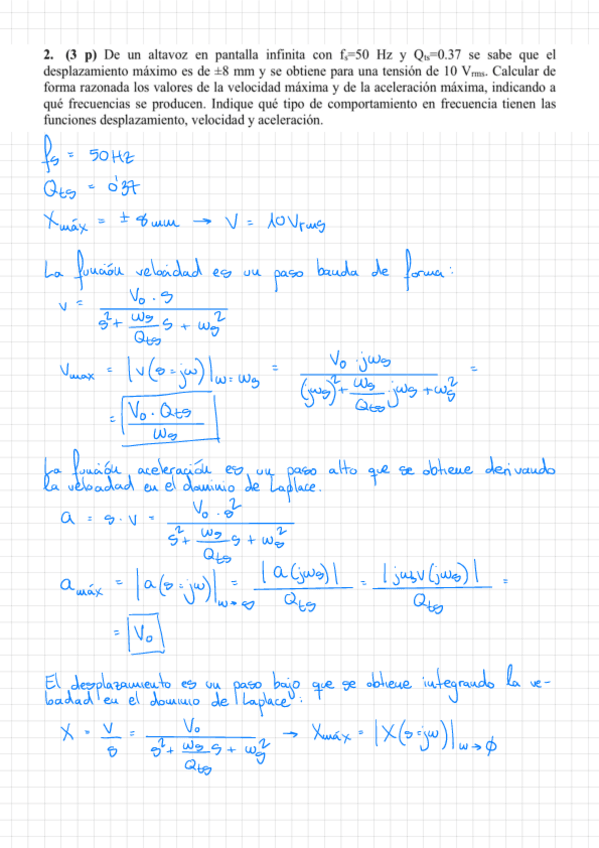 2. (3 p) De un altavoz en pantalla infinita con fs=50 Hz y Qts=0.37 se sabe que el
desplazamiento máximo es de ±8 mm y se obtiene para una tensión de 10 Vrms. Calcular de
forma razonada los valores de la velocidad máxima y de la aceleración máxima, indicando a
qué frecuencias se producen. Indique qué tipo de comportamiento en frecuencia tienen las
funciones desplazamiento, velocidad y aceleración.
fs = 50Hz
Qts = 0'37
Xmáx = ± 8mm → V = 10Vrms
La función velocidad es un paso banda de forma:
v = V0 · s / (s² + (ωs/Qts) s + ωs²)
Vmax = |v(s=jω)|ω=ωs = V0 · jωs / ((jωs)² + (ωs/Qts) · jωs + ωs²) =
= V0 · Qts / ωs
La función aceleración es un paso alto que se obtiene derivando
la velocidad en el dominio de Laplace.
a = s · v = V0 · s² / (s² + (ωs/Qts) s + ωs²)
amáx = |a(s=jω)|ω→∞ = |a(jωs)| / Qts = |jωsv(jωs)| / Qts =
= V0
El desplazamiento es un paso bajo que se obtiene integrando la ve-
locidad en el dominio de Laplace:
X = v/s = V0 / (s² + (ωs/Qts) s + ωs²) → Xmáx = |X(s=jω)|ω→ϕ